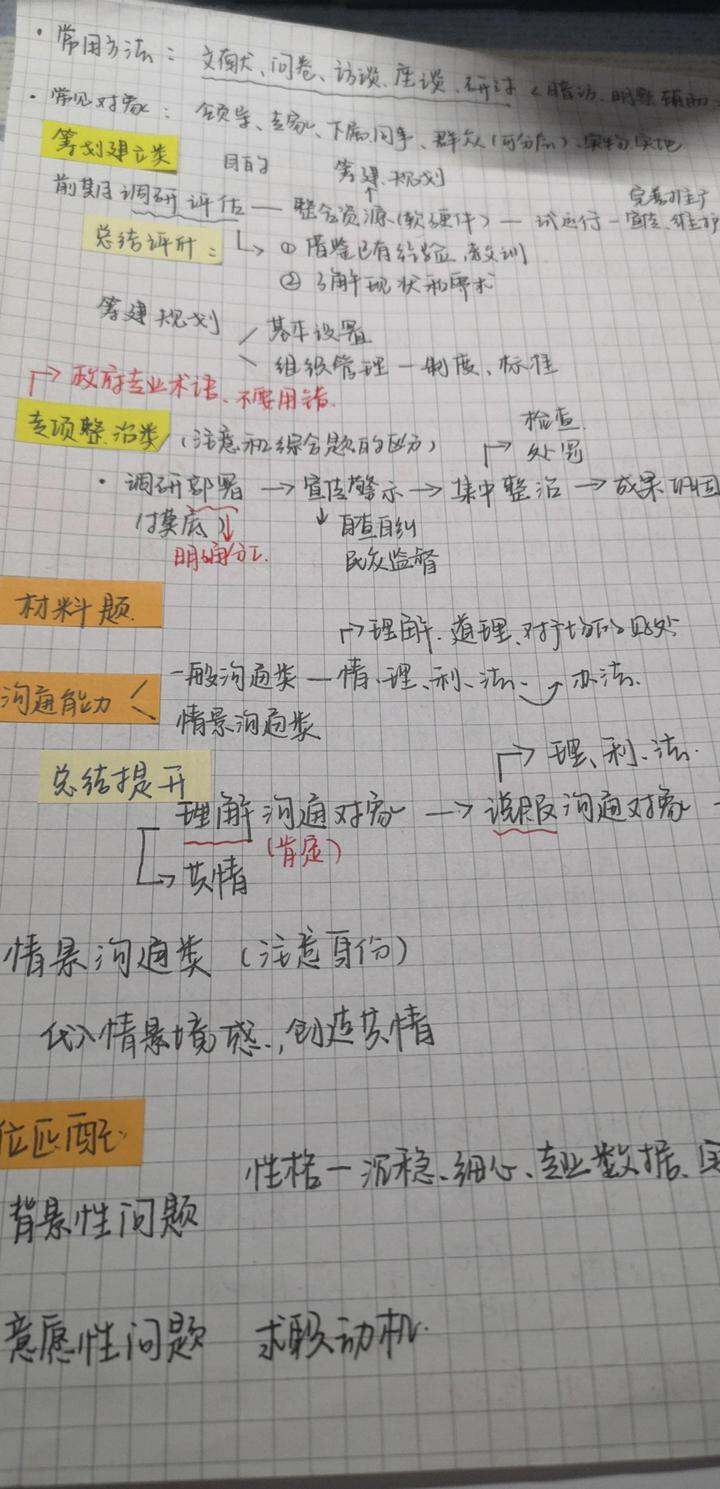 · 常用方法：文献、问卷、访谈、座谈、研讨 (暗访、
· 常见对象：领导、专家、下属同事、群众(可分层)、实物、实地
筹划建立类 目的 筹建规划
前期调研评估 — 整合资源(软硬件) — 试运行 — 宣传、维护
总结评析： → ① 借鉴已有经验、教训
② 了解现状和需求
筹建规划 基本设置
组织管理 — 制度、标准
→ 政府专业术语、不要用错.
专项整治类 (注意和综合题的区分) 检查
处罚
· 调研部署 → 宣传警示 → 集中整治 → 成果巩固
(摸底) 自查自纠
明确分工. 民众监督
材料题
→ 理解、道理、对于切的
沟通能力 一般沟通类 — 情、理、利、法. 办法.
情景沟通类
总结提升 → 理、利、法.
理解沟通对象 → 说服沟通对象
(肯定)
→ 共情
情景沟通类 (注意身份)
代入情景境感., 创造共情
位匹配
性格 — 沉稳、细心、专业数据、
背景性问题
意愿性问题 求职动机.